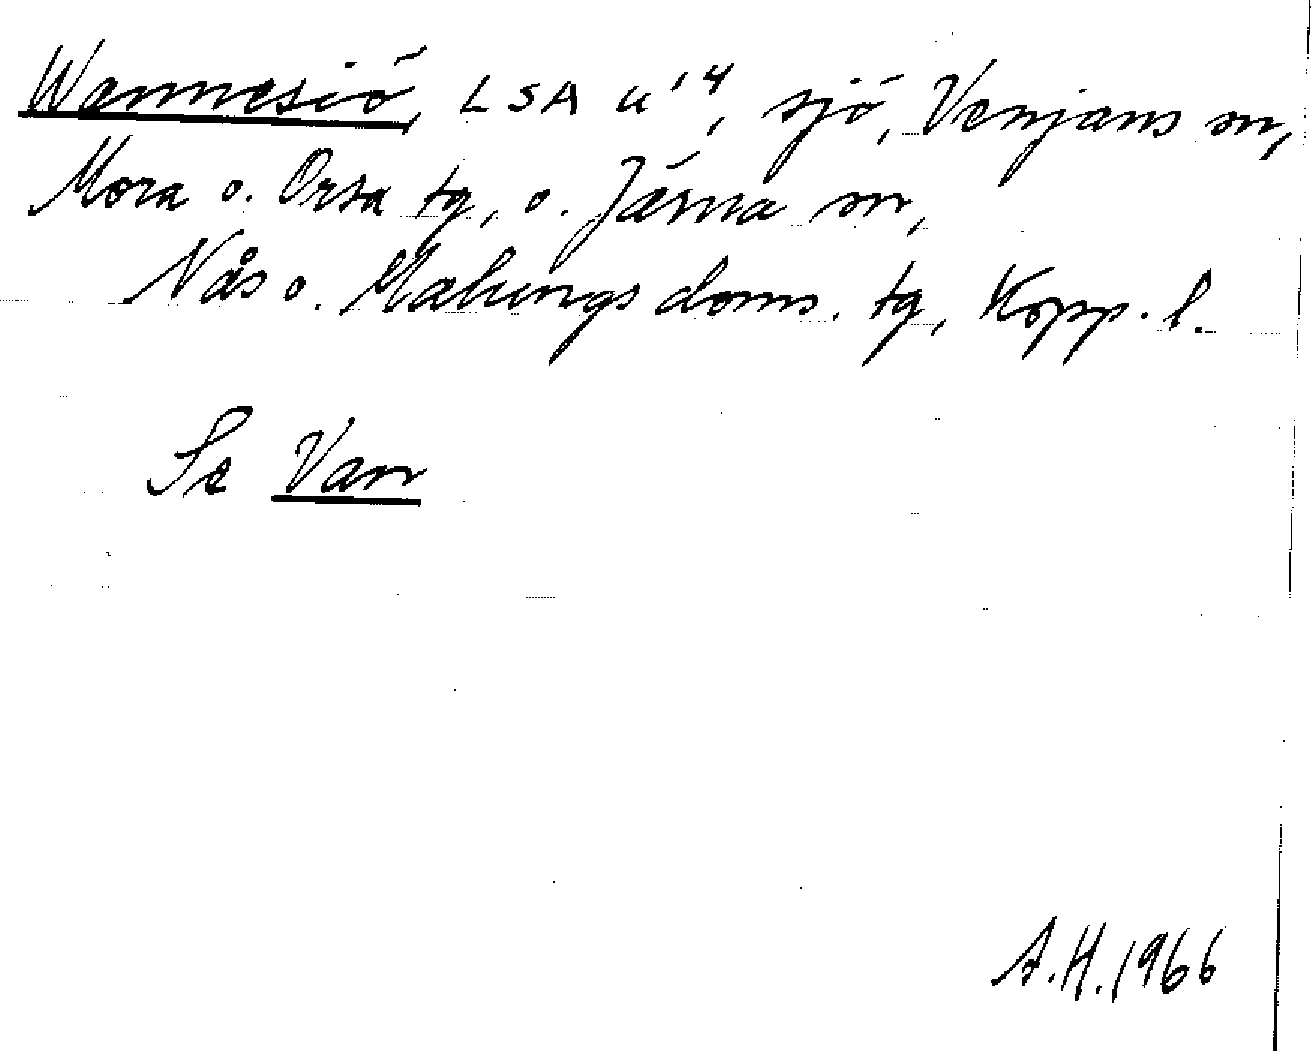 Wannesiö, LSA u¹⁴, sjö, Venjans sn,
Mora o. Orsa tg, o. Järna sn,
Nås o. Malungs doms. tg, Kopp. l.
Se Van
A.H. 1966